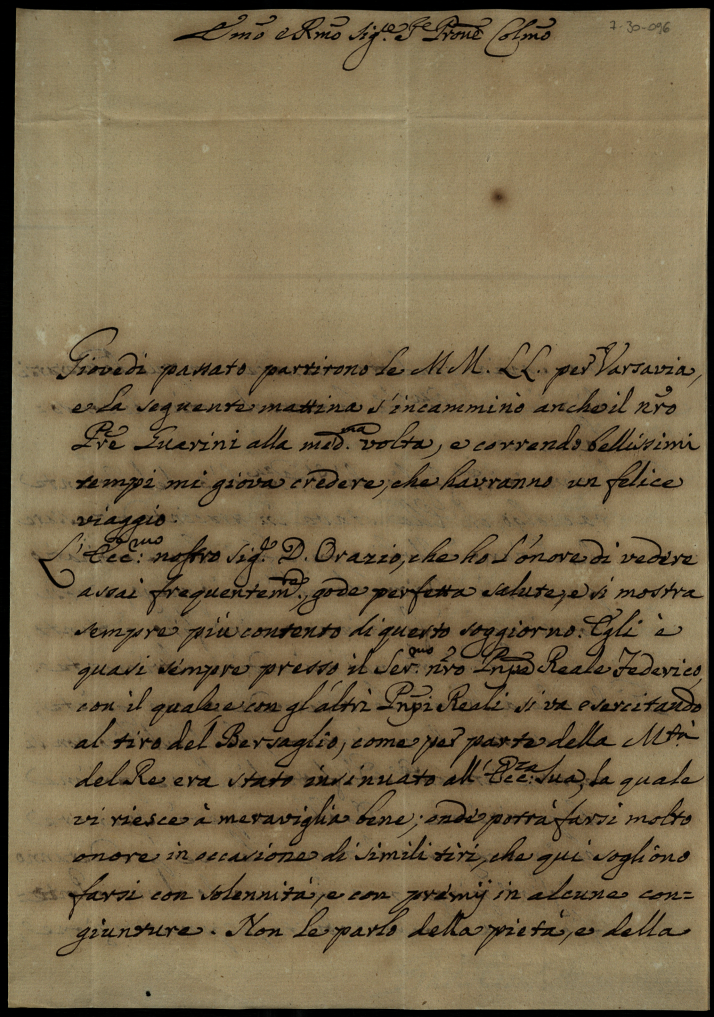 7-30-096
Emo e Rmo Sigre Pe Prone Colmo
Giovedì passato partirono le MM. LL. per Varsavia,
e la seguente mattina s'incamminò anche il nro
Pre Guarini alla medma volta, e correndo bellissimi
tempi mi giova credere, che havranno un felice
viaggio.
L'Eccmo nostro Sigr D. Orazio, che ho l'onore di vedere
assai frequentemte, gode perfetta salute, e si mostra
sempre più contento di questo soggiorno. Egli è
quasi sempre presso il Sermo nro Pnpe Reale Federico,
con il quale, e con gl'altri Pnpi Reali si va esercitando
al tiro del Bersaglio, come per parte della Mtà
del Re era stato insinuato all'Eccza Sua, la quale
vi riesce à meraviglia bene, onde potrà farsi molto
onore in occasione di simili tiri, che qui sogliono
farsi con solennità, e con premij in alcune con=
giunture. Non le parlo della pietà, e della